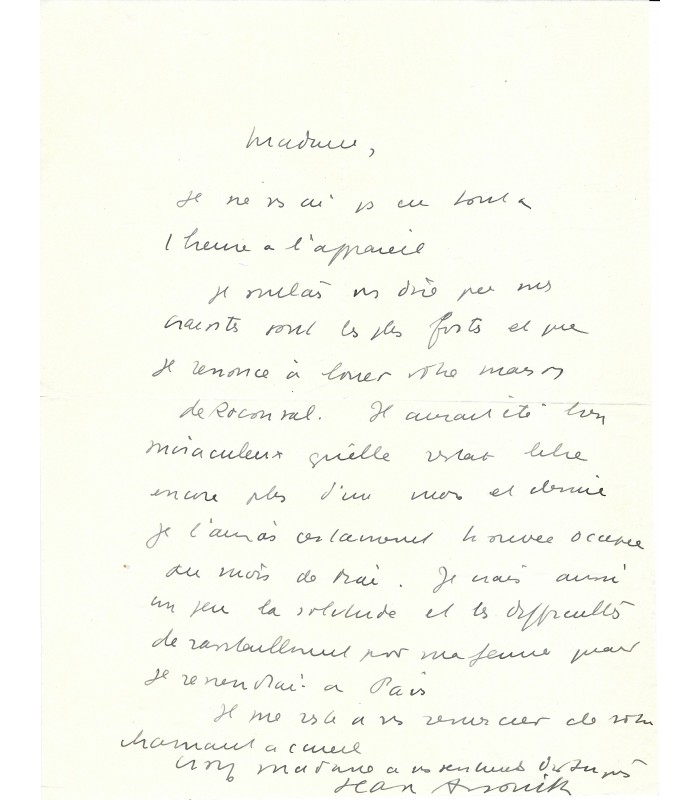 Madame,
Je ne vs ai ps eu tout a
l heure a l'appareil
Je voulais vs dire que mes
craintes sont les plus fortes et que
je renonce à louer votre maison
de Roconval. Il aurait été bien
miraculeux qu'elle restat libre
encore plus d'un mois et demie
je l'aurais certainement trouvée occupée
au mois de Mai. Je crais aussi
un peu la solitude et les difficultés
de ravitaillement pour ma femme quand
je reviendrai a Paris
Il me reste a vs remercier de votre
charmant accueil
Croyez madame a vs sentiments distingués
Jean